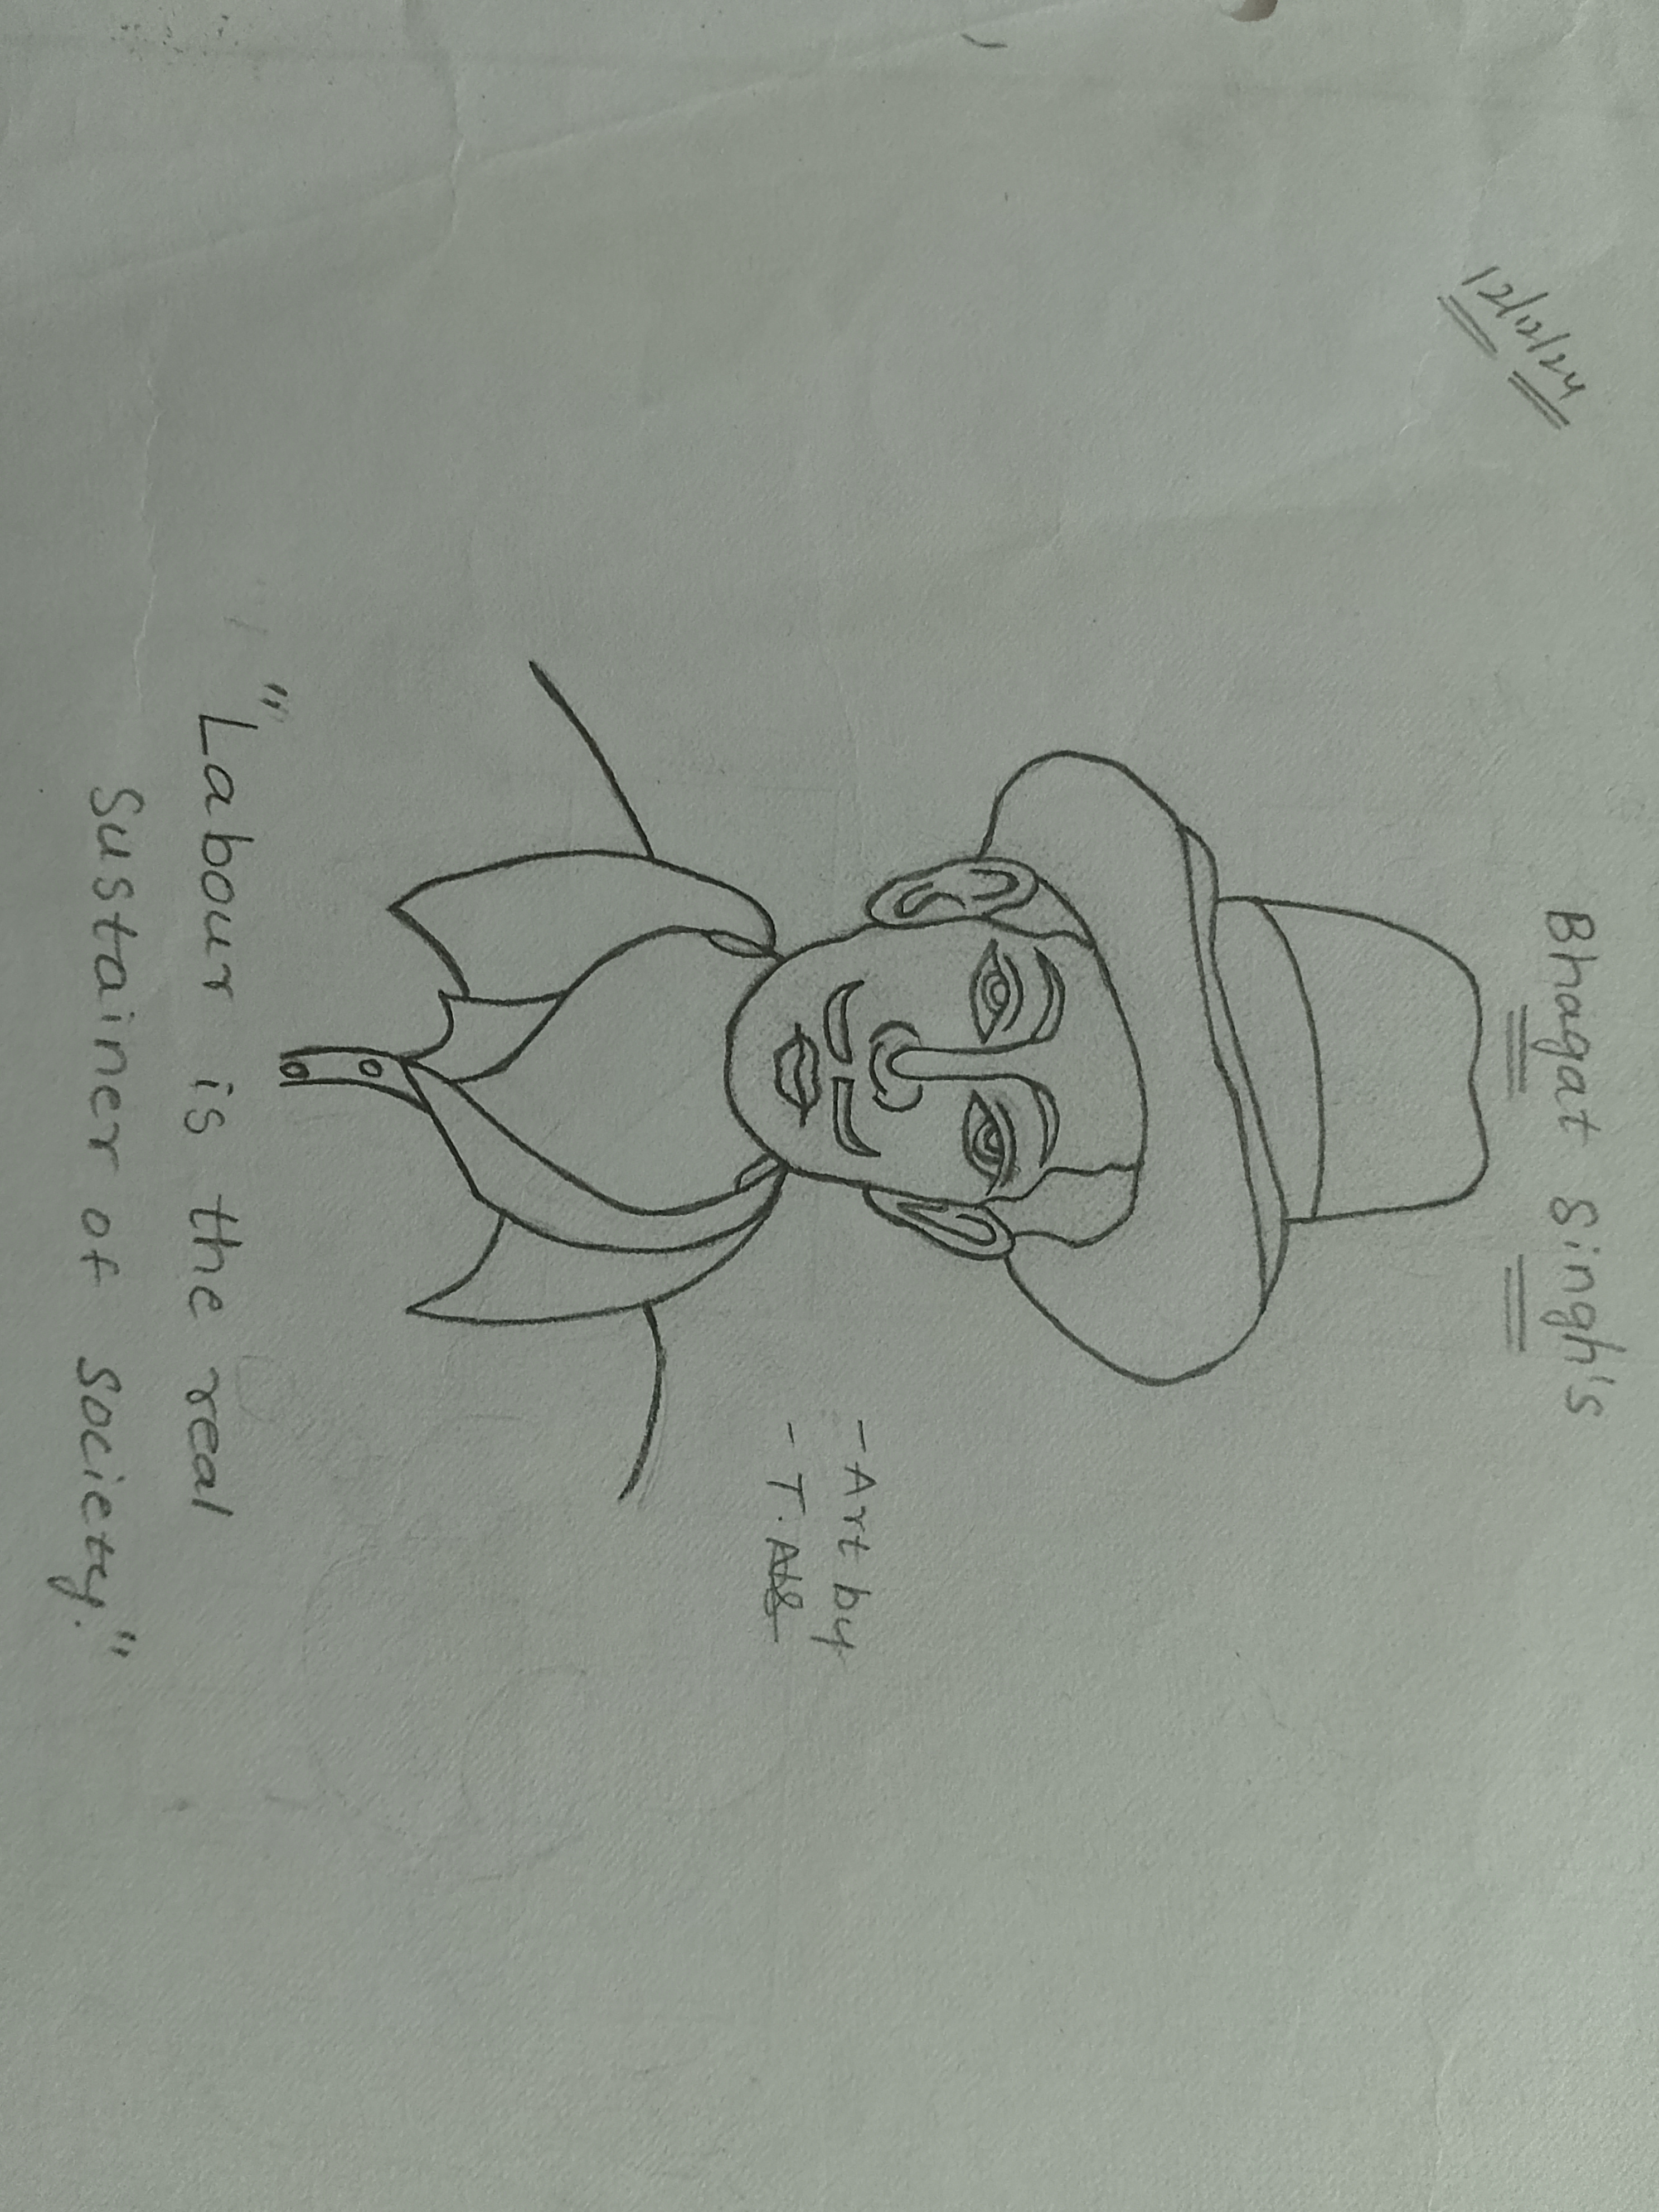 12/12/24
Bhagat Singh's
- Art by
- T.
"Labour is the real
Sustainer of society."